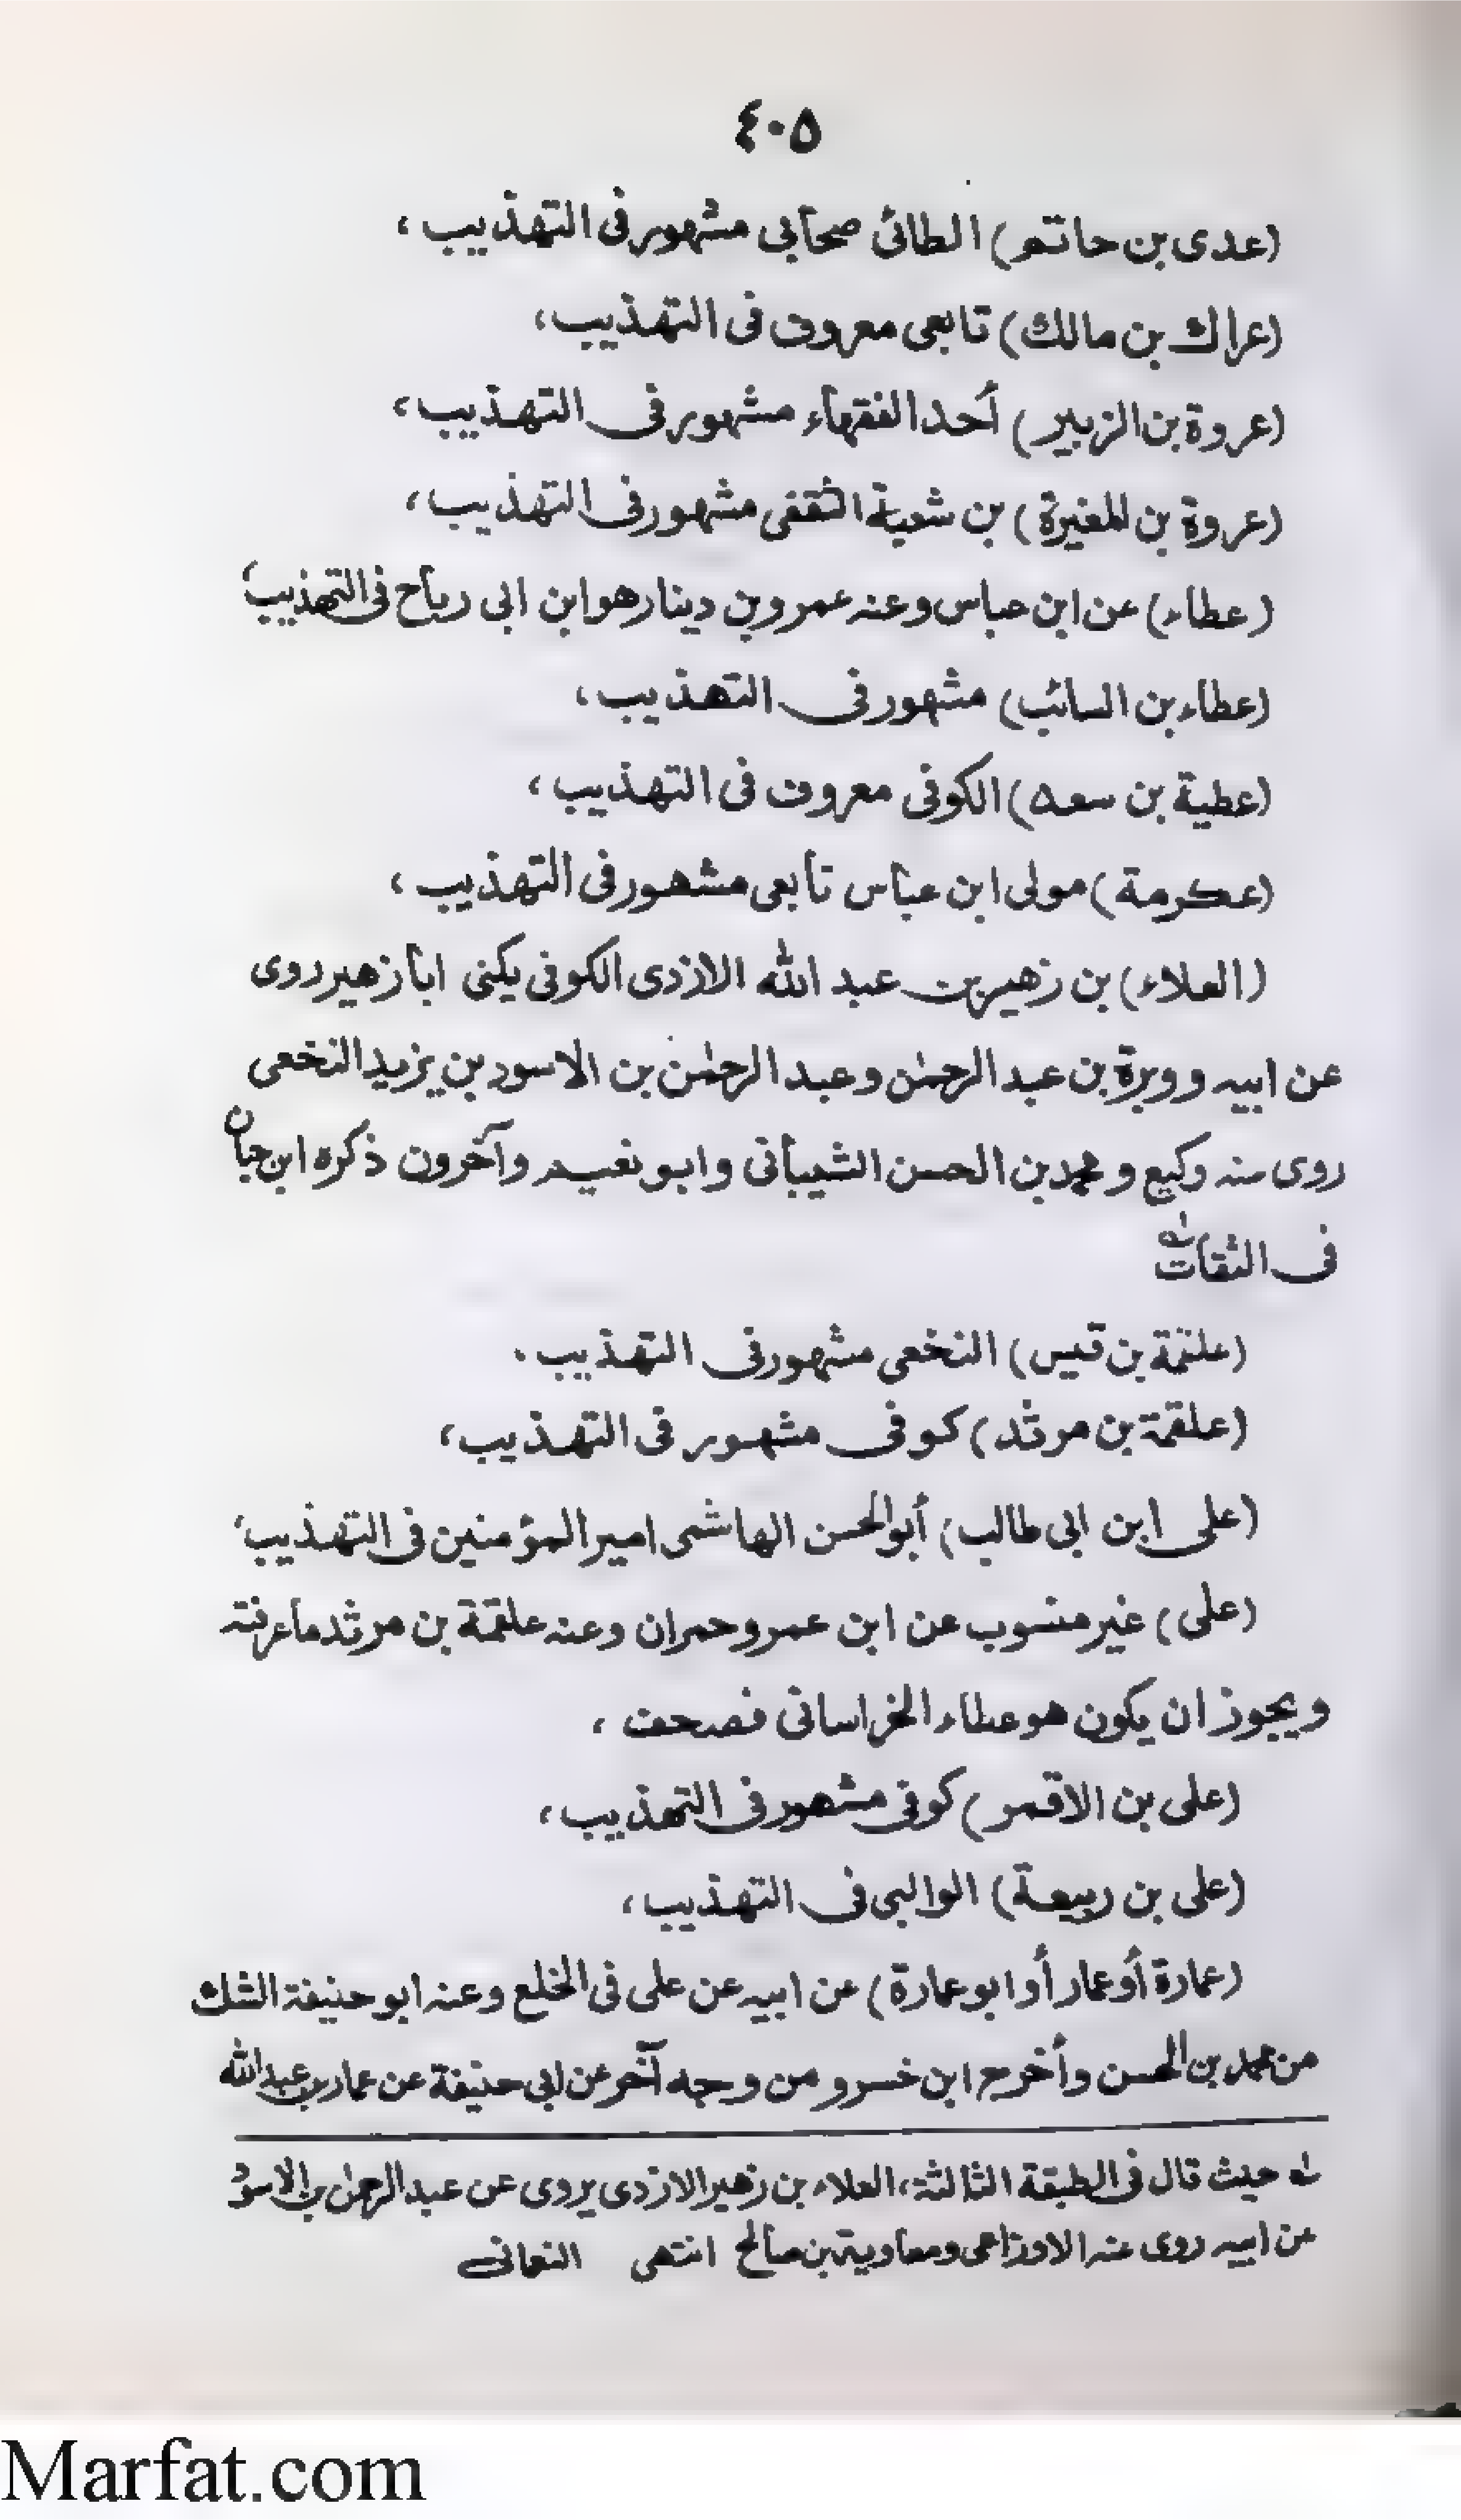 ٤٠٥
(عدى بن حاتم) الطائى صحابى مشهور فى التهذيب،
(عراك بن مالك) تابعى معروف فى التهذيب،
(عروة بن الزبير) أحد الفقهاء مشهور فى التهذيب،
(عروة بن المغيرة) بن شعبة الثقفى مشهور فى التهذيب،
(عطاء) عن ابن عباس وعنه عمرو بن دينار هو ابن ابى رباح فى التهذيب،
(عطاء بن السائب) مشهور فى التهذيب،
(عطية بن سعد) الكوفى معروف فى التهذيب،
(عكرمة) مولى ابن عباس تابعى مشهور فى التهذيب،
(العلاء) بن زهير بن عبد الله الازدى الكوفى يكنى ابا زهير روى
عن ابيه ووبرة بن عبد الرحمٰن وعبد الرحمٰن بن الاسود بن يزيد النخعى
روى عنه وكيع ومحمد بن الحسن الشيبانى وابو نعيم وآخرون ذكره ابن حبان
فى الثقات له
(علقمة بن قيس) النخعى مشهور فى التهذيب.
(علقمة بن مرثد) كوفى مشهور فى التهذيب،
(على ابن ابى طالب) أبو الحسن الهاشمى امير المؤمنين فى التهذيب،
(على) غير منسوب عن ابن عمر وحمران وعنه علقمة بن مرثد ما عرفته
ويجوز ان يكون هو عطاء الخراسانى فصحف،
(على بن الاقمر) كوفى مشهور فى التهذيب،
(على بن ربيعة) الوالبى فى التهذيب،
(عمارة أو عمار أو ابو عمارة) عن ابيه عن على فى الخلع وعنه ابو حنيفة الشك
من محمد بن الحسن وأخرج ابن خسرو من وجه آخر عن ابى حنيفة عن عمار بن عبد الله
له حيث قال فى الطبقة الثالثة، العلاء بن زهير الازدى يروى عن عبد الرحمٰن بن الاسود
عن ابيه روى عنه الاوزاعى ومعاوية بن صالح انتهى النعمانى
Marfat.com